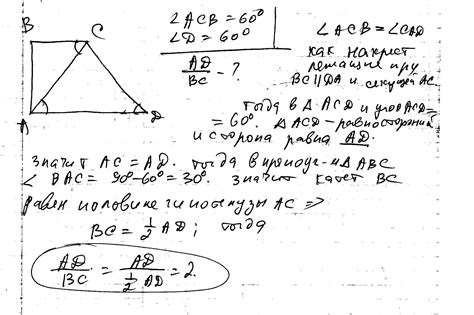 B C
A D
∠ACB = 60°
∠D = 60°
AD/BC - ?
∠ACB = ∠CAD
как накрест
лежащие при
BC || DA и секущей AC
тогда в △ACD и угол ACD =
= 60°. △ACD – равносторонний
и сторона равна AD.
Значит AC = AD. Тогда в прямоуг-м △ABC
∠BAC = 90° - 60° = 30°. Значит катет BC
равен половине гипотенузы AC ⇒
BC = 1/2 AD; тогда
AD/BC = AD/(1/2 AD) = 2.